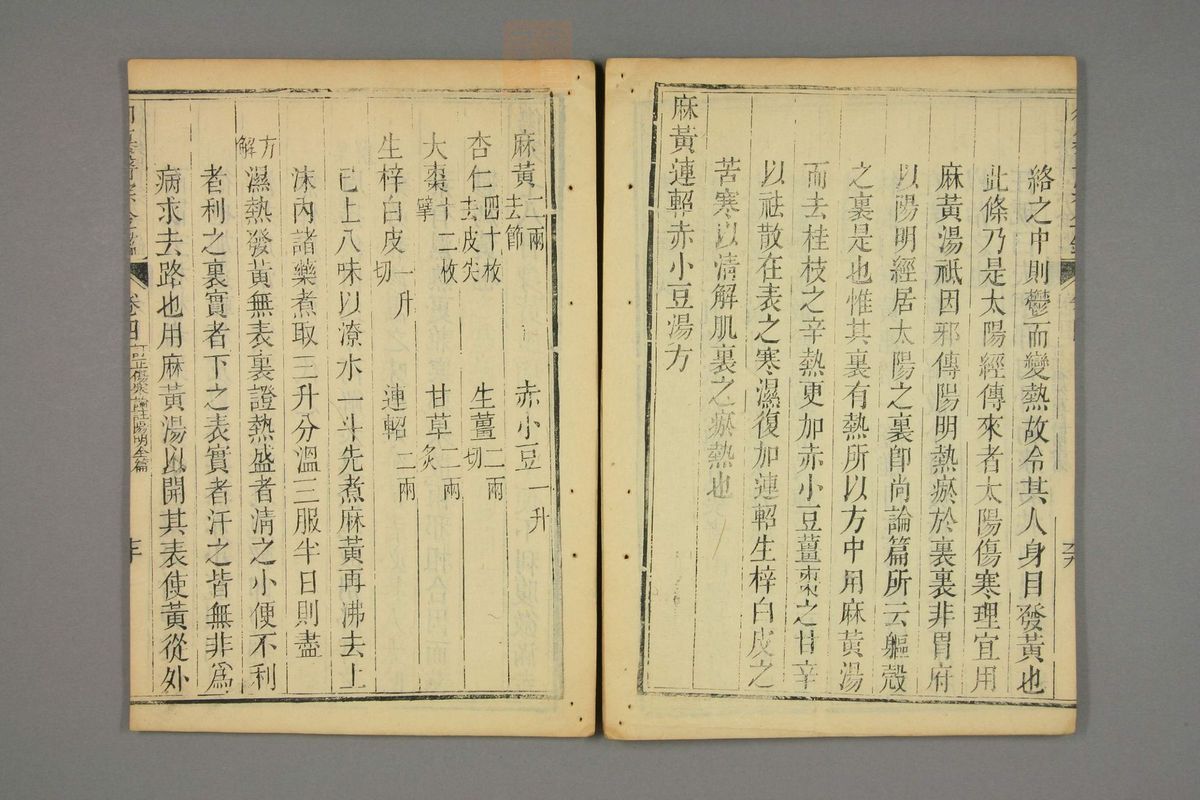 絡之中則鬱而變熱故令其人身目發黃也
此條乃是太陽經傳來者太陽傷寒理宜用
麻黃湯祇因邪傳陽明熱瘀於裏裏非胃府
以陽明經居太陽之裏卽尚論篇所云軀殼
之裏是也惟其裏有熱所以方中用麻黃湯
而去桂枝之辛熱更加赤小豆薑棗之甘辛
以祛散在表之寒濕復加連軺生梓白皮之
苦寒以清解肌裏之瘀熱也
麻黃連軺赤小豆湯方
麻黃二兩去節 赤小豆一升
杏仁四十枚去皮尖 生薑二兩切
大棗十二枚擘 甘草二兩炙
生梓白皮一升切 連軺二兩
已上八味以潦水一斗先煮麻黃再沸去上
沫內諸藥煮取三升分溫三服半日則盡
方解 濕熱發黃無表裏證熱盛者清之小便不利
者利之裏實者下之表實者汗之皆無非爲
病求去路也用麻黃湯以開其表使黃從外
卷四 訂正傷寒論註陽明全篇